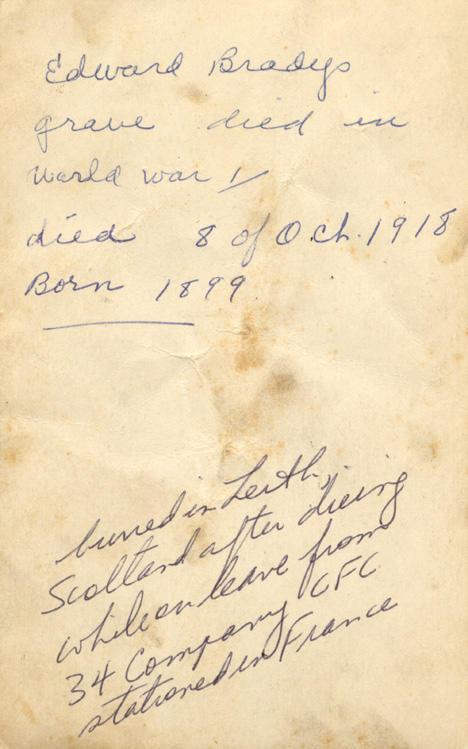 Edward Bradys
grave died in
World war 1
died 8 of Oct. 1918
Born 1899
burried in Leith,
Scotland after dieing
while on leave from
34 Company CFC
stationed in France